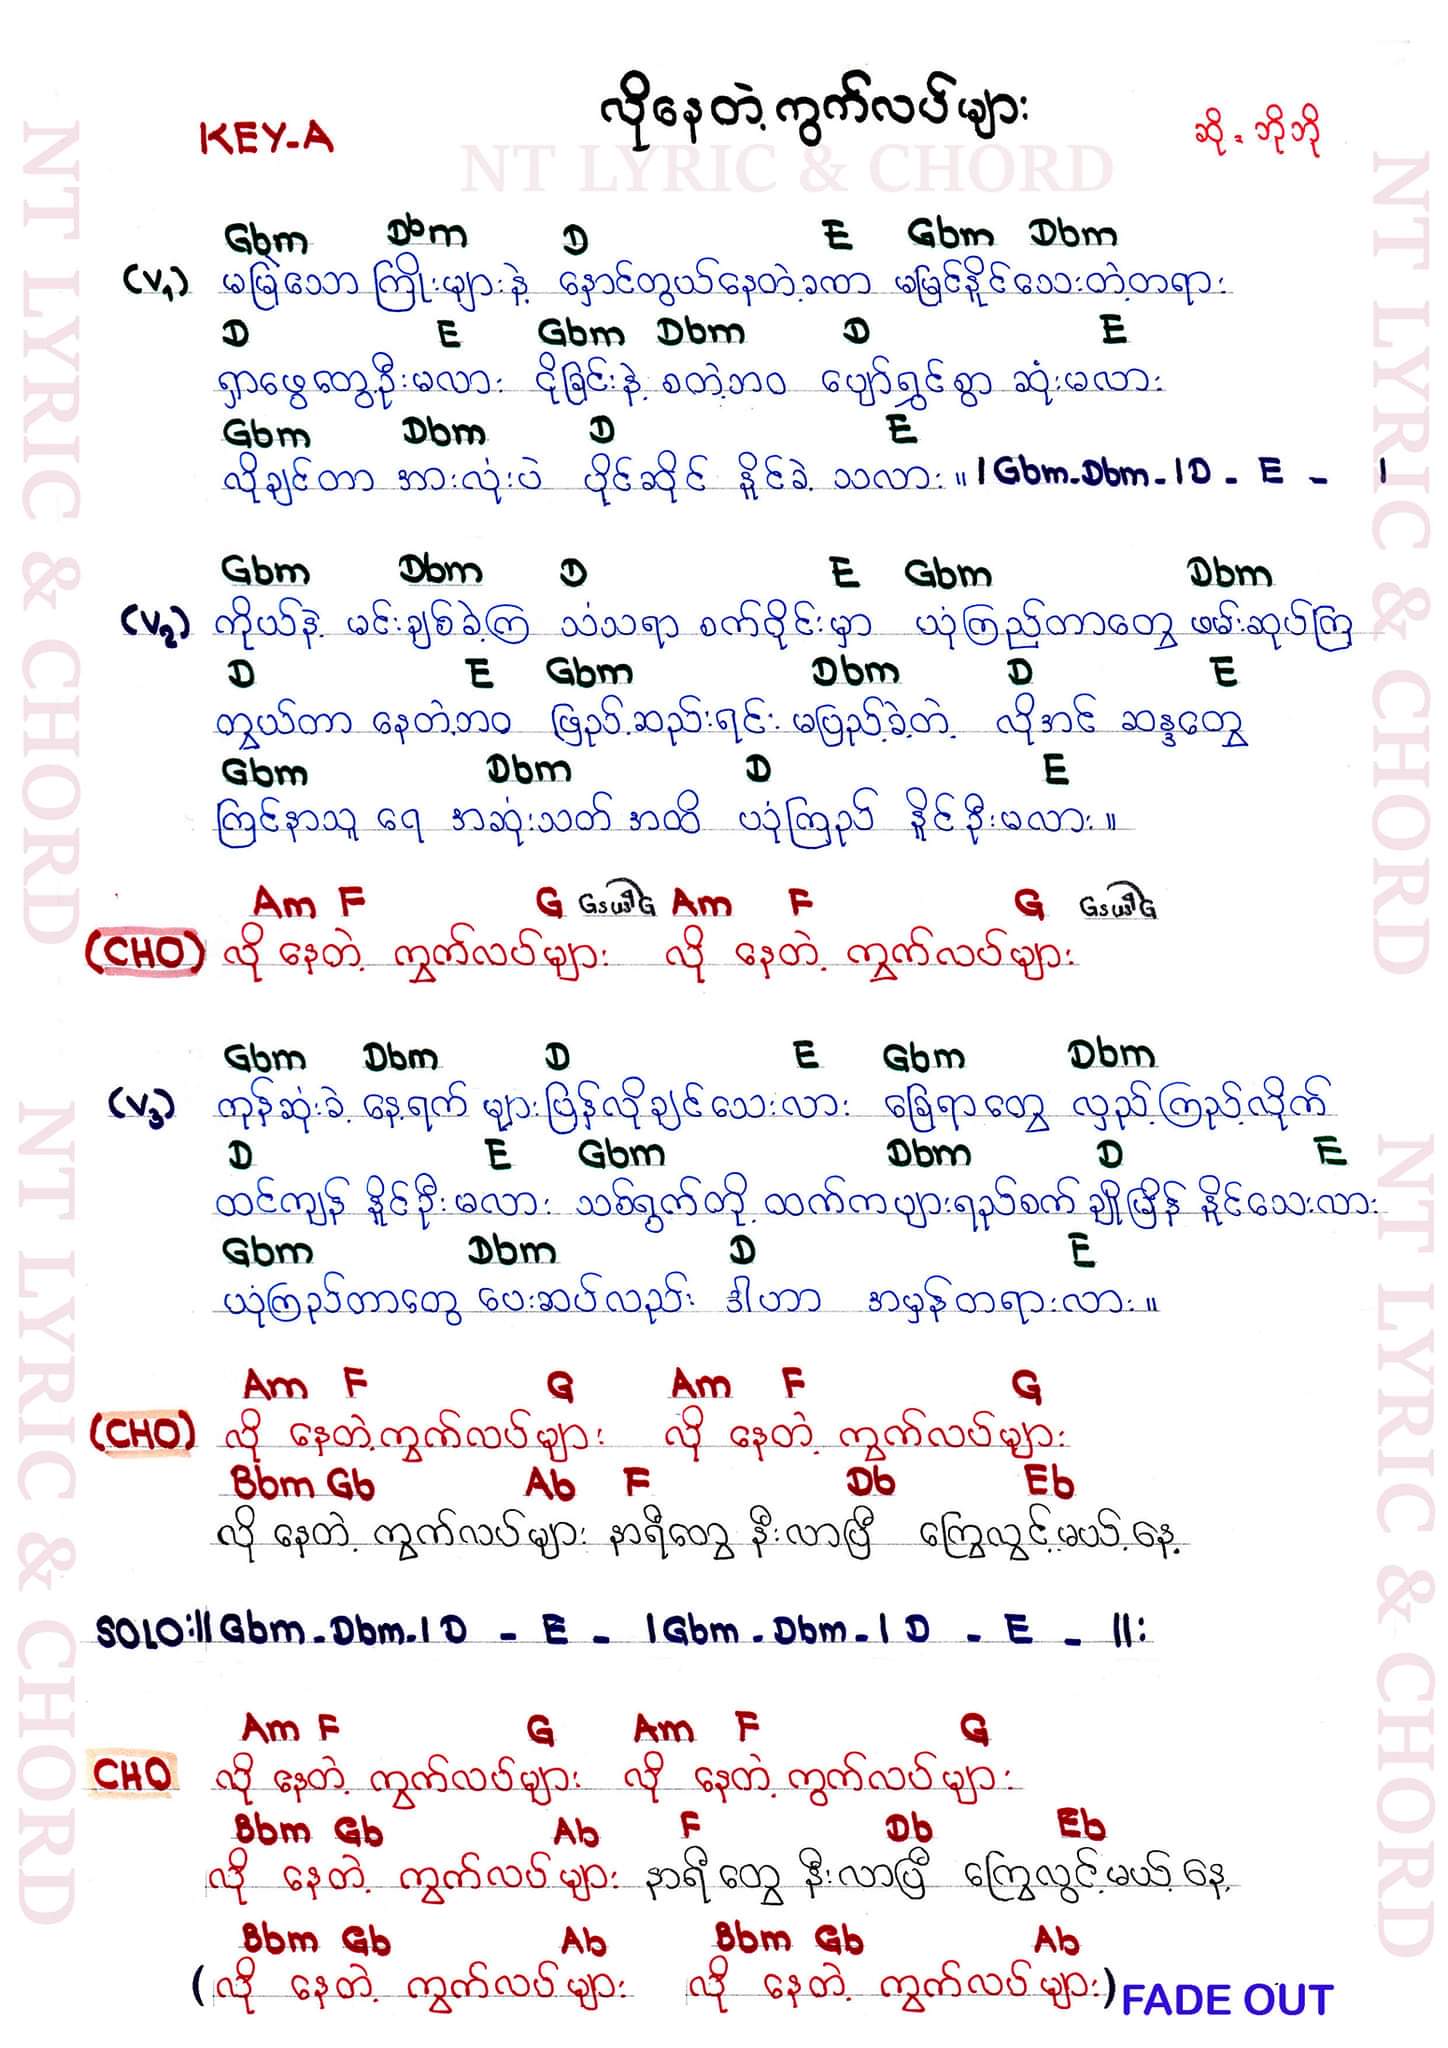 လိုနေတဲ့ကွက်လပ်များ
KEY-A
ဆို - ဘိုဘို
NT LYRIC & CHORD
Gbm Dbm D E Gbm Dbm
(V1) မမြဲသော ကြိုးများနဲ့ နှောင်တွယ်နေတဲ့ခဏ မမြင်နိုင်သေးတဲ့တရား
D E Gbm Dbm D E
ရှာဖွေတွေ့ဦးမလား ငိုခြင်းနဲ့ စတဲ့ဘဝ ပျော်ရွှင်စွာ ဆုံးမလား
Gbm Dbm D E
လိုချင်တာ အားလုံးပဲ ပိုင်ဆိုင် နိုင်ခဲ့ သလား။ | Gbm-Dbm-| D - E - |
Gbm Dbm D E Gbm Dbm
(V2) ကိုယ်နဲ့ မင်းချစ်ခဲ့ကြ သံသရာ စက်ဝိုင်းမှာ ယုံကြည်တာတွေ ဖမ်းဆုပ်ကြ
D E Gbm Dbm D E
တွယ်တာ နေတဲ့ဘဝ ဖြည့်ဆည်းရင်း မပြည့်ခဲ့တဲ့ လိုအင် ဆန္ဒတွေ
Gbm Dbm D E
ကြင်နာသူ ရေ အဆုံးသတ် အထိ ယုံကြည် နိုင်ဦးမလား။
Am F G G Am F G G
(CHO) လို နေတဲ့ ကွက်လပ်များ လို နေတဲ့ ကွက်လပ်များ
Gbm Dbm D E Gbm Dbm
(V3) ကုန်ဆုံးခဲ့ နေ့ရက် များပြန်လိုချင်သေးလား ခြေရာတွေ လှည့်ကြည့်လိုက်
D E Gbm Dbm D E
ထင်ကျန် နိုင်ဦးမလား သစ်ရွက်တို့ ထက်ကပျားရည်စက် ချိုမြိန် နိုင်သေးလား
Gbm Dbm D E
ယုံကြည်တာတွေ ပေးဆပ်လည်း ဒါဟာ အမှန်တရားလား။
Am F G Am F G
(CHO) လို နေတဲ့ကွက်လပ်များ လို နေတဲ့ ကွက်လပ်များ
Bbm Gb Ab F Db Eb
လို နေတဲ့ ကွက်လပ်များ နာရီတွေ နီးလာပြီ ကြွေလွင့်မယ့်နေ့
SOLO:|| Gbm-Dbm-| D - E - | Gbm-Dbm-| D - E - ||:
Am F G Am F G
CHO လို နေတဲ့ ကွက်လပ်များ လို နေတဲ့ ကွက်လပ်များ
Bbm Gb Ab F Db Eb
လို နေတဲ့ ကွက်လပ်များ နာရီ တွေ နီးလာပြီ ကြွေလွင့်မယ့် နေ့
Bbm Gb Ab Bbm Gb Ab
(လို နေတဲ့ ကွက်လပ်များ လို နေတဲ့ ကွက်လပ်များ) FADE OUT
NT LYRIC & CHORD
NT LYRIC & CHORD
NT LYRIC & CHORD
NT LYRIC & CHORD